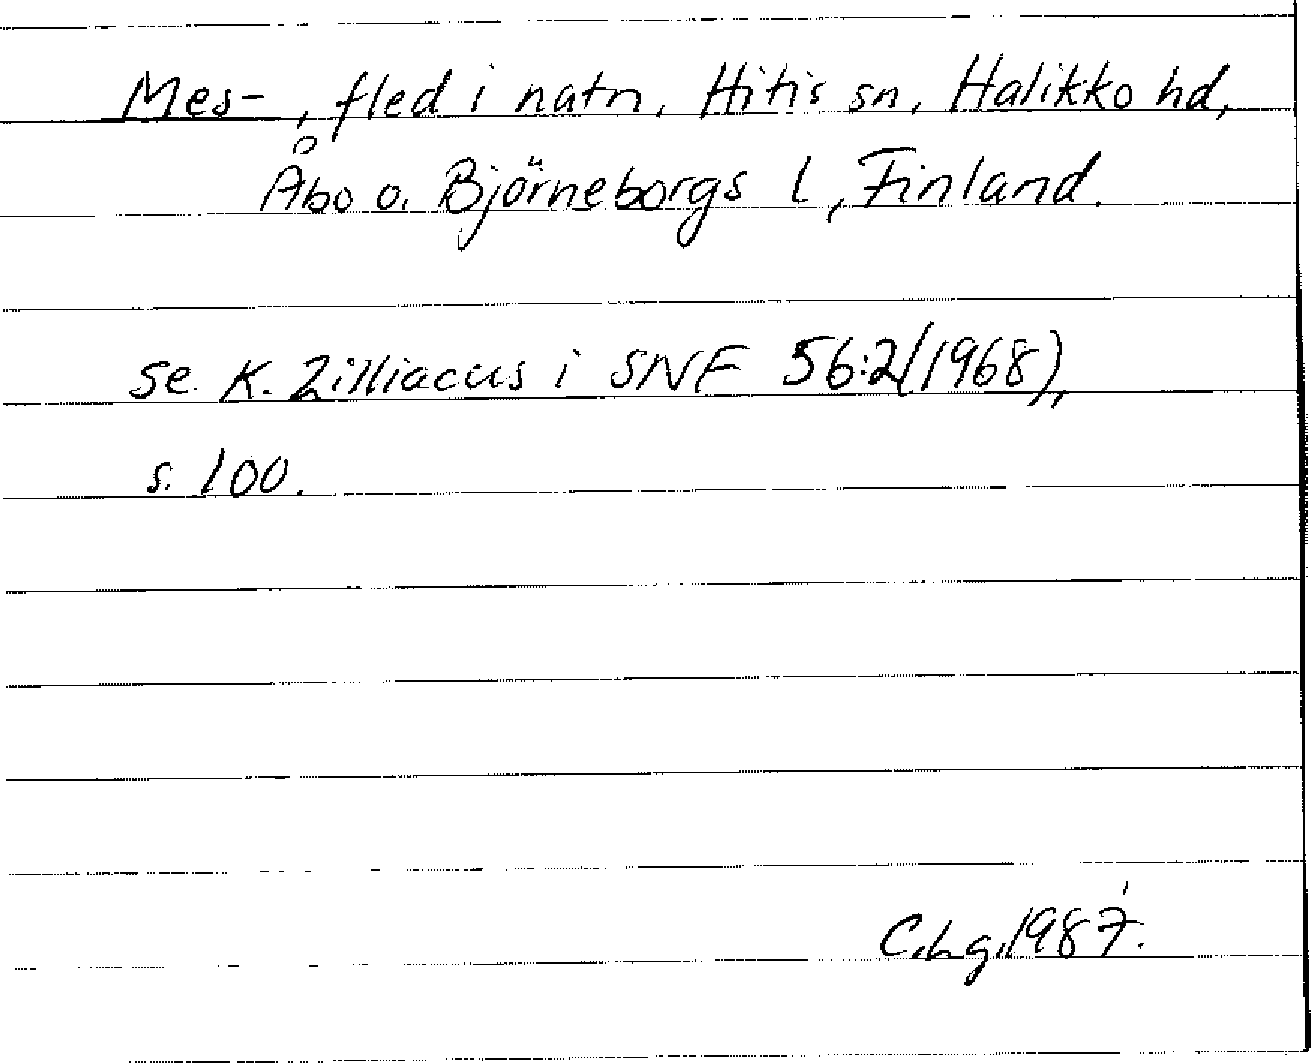 Mes-, fled i natn, Hitis sn, Halikko hd,
Åbo o. Björneborgs l, Finland.
se K. Zilliacus i SNF 56:2(1968),
s. 100.
C.Lg. 1987.